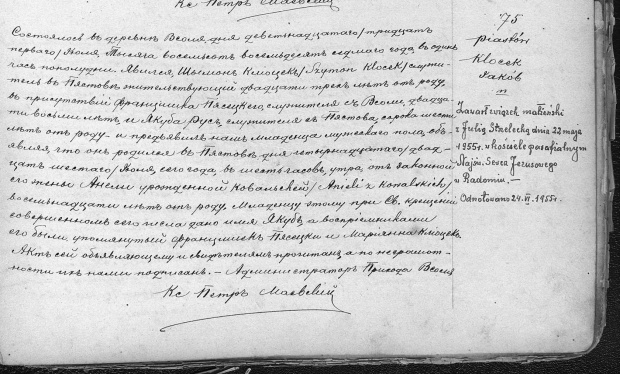 Кс Петръ Маевскій
Состоялось въ деревнѣ Всоля, дня девятнадцатаго/тридцать
перваго/Іюля Тысяча восемьсотъ восемьдесятъ седмаго года, въ одинъ
часъ пополудни. Явился Шимонъ Клоцекъ/Szymon Klocek/служи-
тель въ Пястовѣ жительствующій двадцати трехъ лѣтъ отъ роду,
въ присутствіи Францишка Пясецкаго, служителя съ Всоли, двадца-
ти восьми лѣтъ и Якуба Русъ, служителя съ Пястова, сорока шести
лѣтъ отъ роду и предъявилъ намъ младенца мужескаго пола, объ-
являя, что онъ родился въ Пястовѣ дня четырнадцатаго/двад-
цать шестаго/Іюля, сего года, въ шесть часовъ утра, отъ законной
его жены Анели урожденной Ковальской/Anieli z Kowalskich/
восемьнадцати лѣтъ отъ роду. Младенцу этому при Св. крещеніи
совершенномъ сего числа дано имя Якубъ, а воспріемниками
его были упомянутый Францишекъ Пясецкій и Маріянна Клоцекъ.
Актъ сей объявляющему и свидѣтелямъ прочитанъ а по неграмот-
ности ихъ нами подписанъ. — Администраторъ Прихода Всоля
Кс Петръ Маевскій
75
Piastów
Klocek
Jakób
Zawarł związek małżeński
z Julią Strzelecką dnia 22 maja
1955 r. w kościele parafialnym
Najśw. Serca Jezusowego
w Radomiu. —
Odnotowano 24.VI.1955 r.